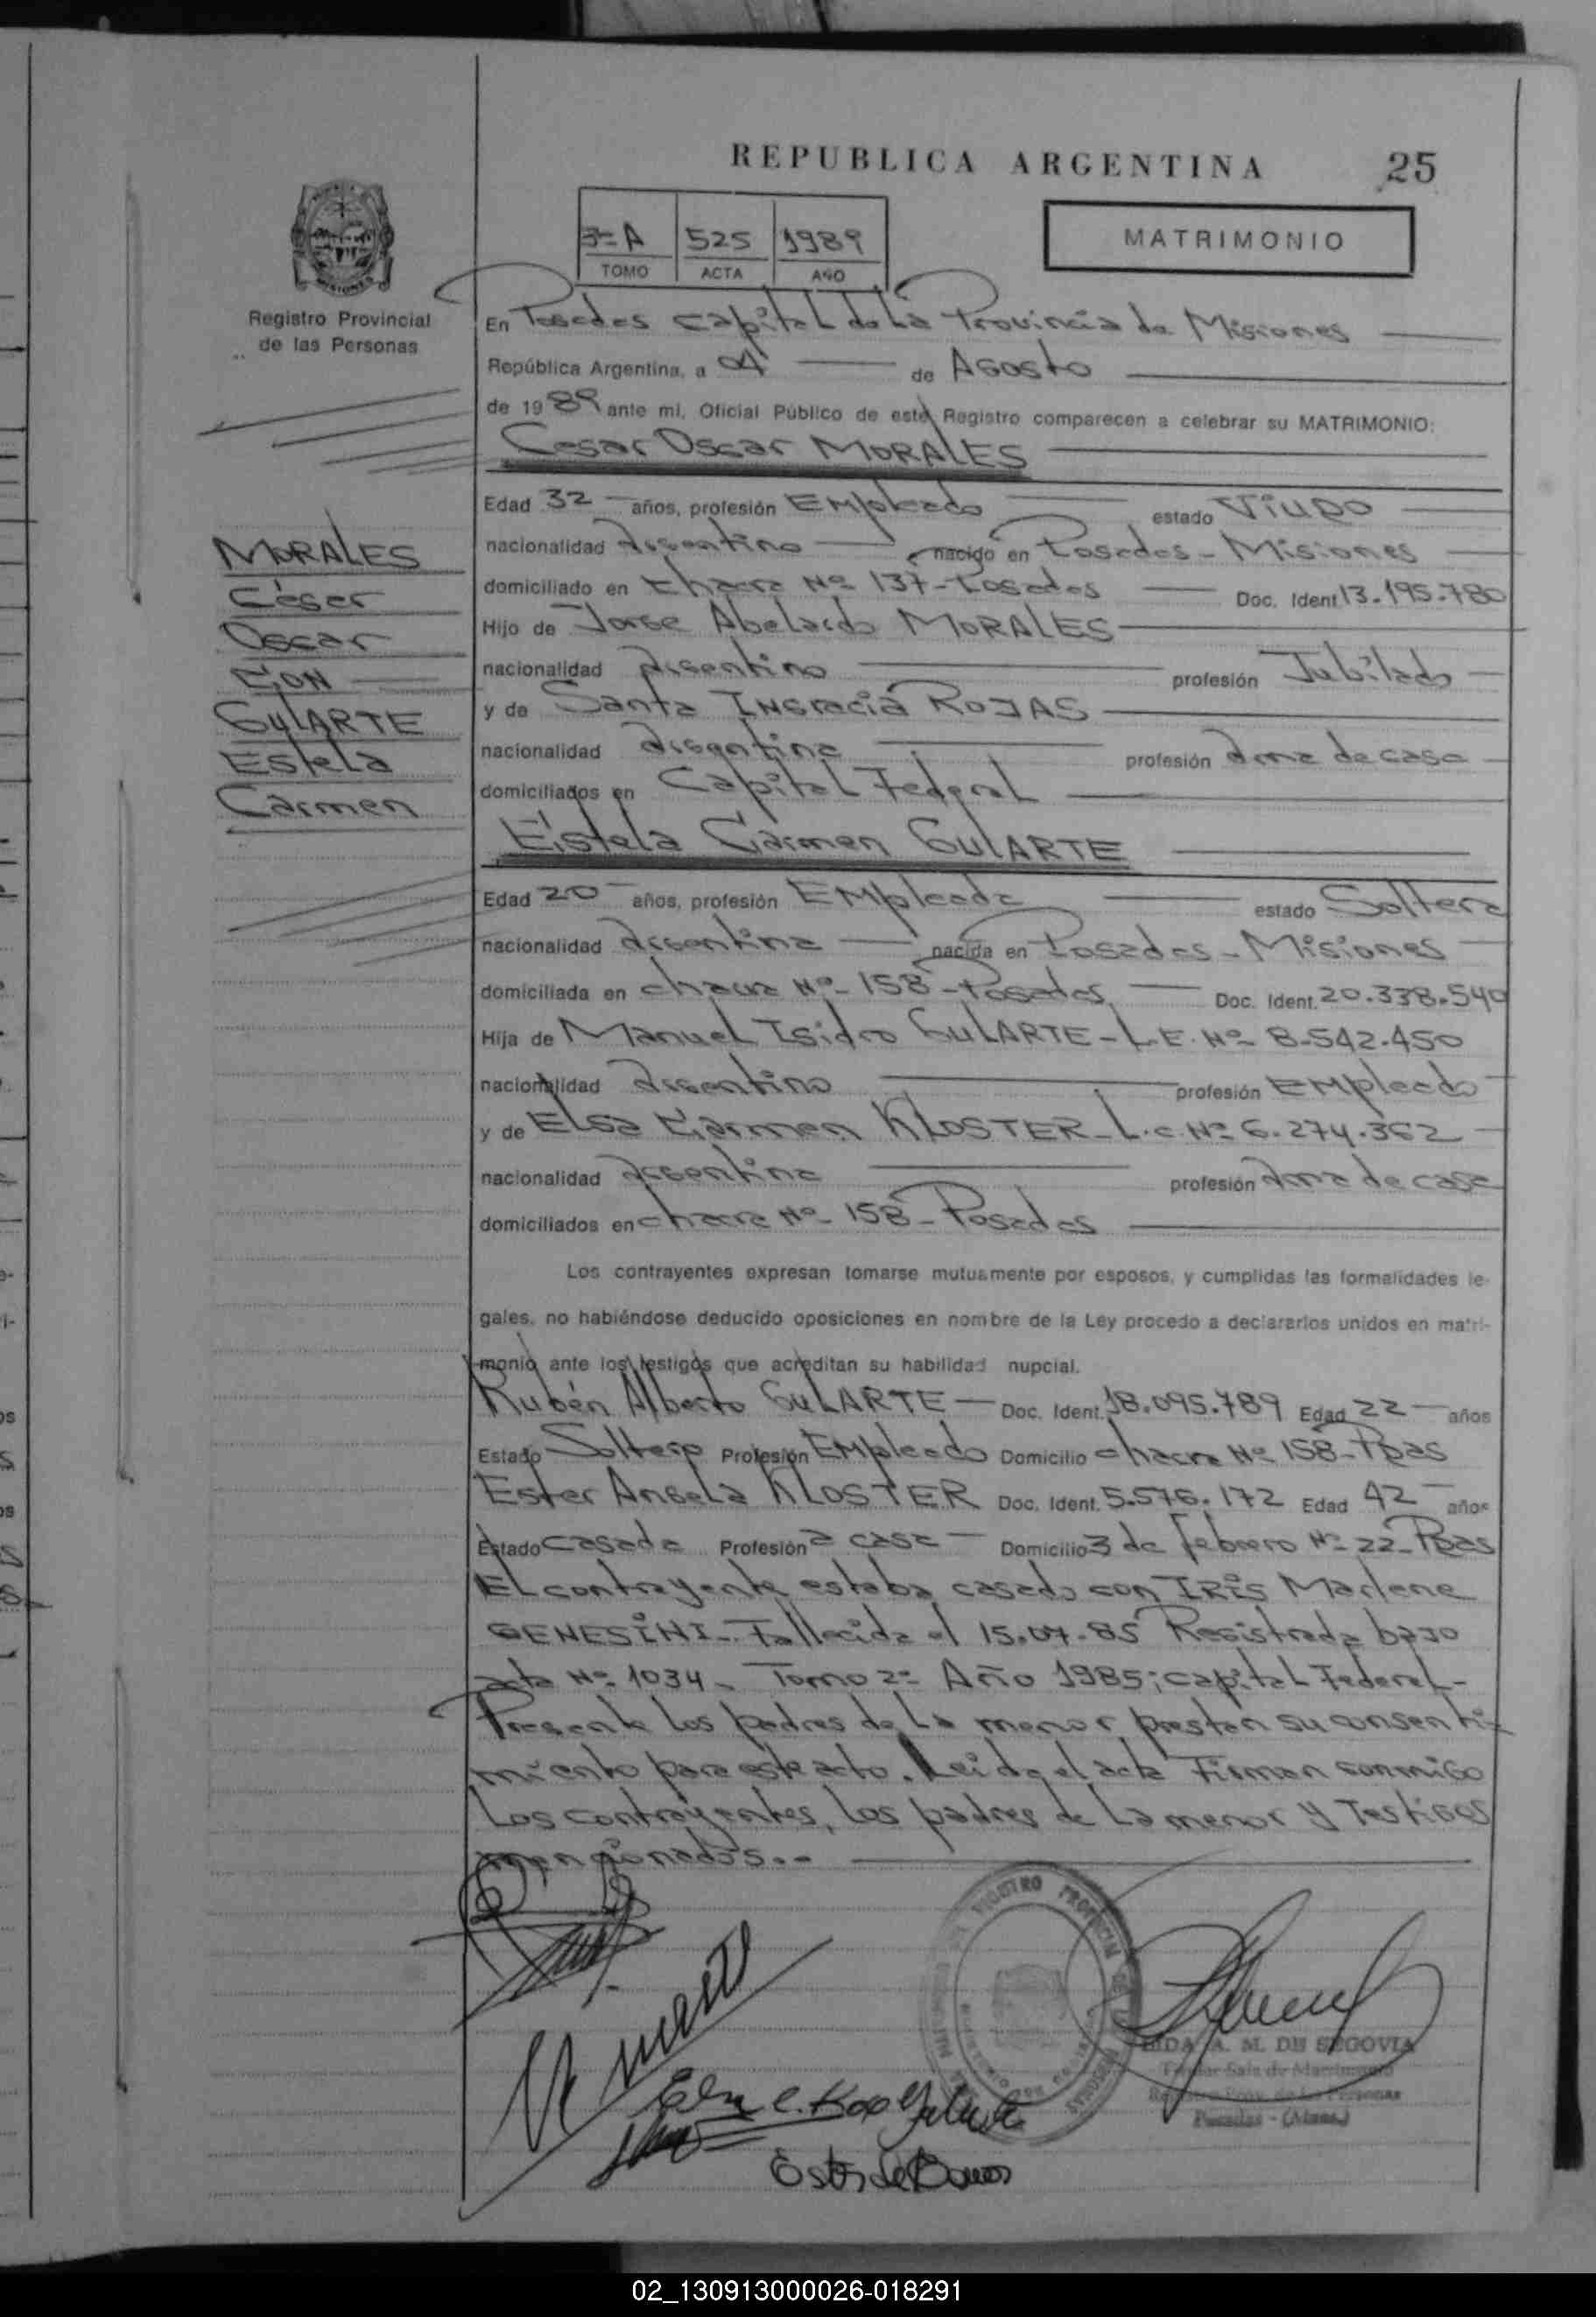 REPUBLICA ARGENTINA 25
3º A 525 1989
TOMO ACTA AÑO
MATRIMONIO
MISIONES
Registro Provincial
de las Personas
En Posadas capital de la Provincia de Misiones
República Argentina, a 04 de Agosto
de 1989 ante mí, Oficial Público de este Registro comparecen a celebrar su MATRIMONIO:
Cesar Oscar MORALES
Edad 32 años, profesión Empleado estado Viudo
nacionalidad argentino nacido en Posadas - Misiones
domiciliado en chacra Nº 137 - Posadas Doc. Ident 13.195.780
Hijo de Jorge Abelardo MORALES
nacionalidad argentino profesión Jubilado
y de Santa Ingracia ROJAS
nacionalidad argentina profesión ama de casa
domiciliados en Capital Federal
MORALES
César
Oscar
CON
GULARTE
Estela
Carmen
Estela Carmen GULARTE
Edad 20 años, profesión Empleada estado Soltera
nacionalidad argentina nacida en Posadas - Misiones
domiciliada en chacra Nº 158 - Posadas Doc. Ident. 20.338.540
Hija de Manuel Isidro GULARTE - L.E. Nº 8.542.450
nacionalidad argentino profesión Empleado
y de Elsa Carmen KLOSTER - L.C. Nº 6.274.362
nacionalidad argentina profesión ama de casa
domiciliados en chacra Nº 158 - Posadas
Los contrayentes expresan tomarse mutuamente por esposos, y cumplidas las formalidades le-
gales, no habiéndose deducido oposiciones en nombre de la Ley procedo a declararlos unidos en matri-
monio ante los testigos que acreditan su habilidad nupcial.
Rubén Alberto GULARTE - Doc. Ident. 18.095.789 Edad 22 años
Estado Soltero Profesión Empleado Domicilio chacra Nº 158 - Pdas
Ester Angela KLOSTER Doc. Ident. 5.576.172 Edad 42 años
Estado casada Profesión a casa Domicilio 3 de febrero Nº 22 - Pdas
El contrayente estaba casado con IRIS Marlene
GENESINI - Fallecida el 15.07.85 Registrada bajo
acta Nº 1034 - Tomo 2º Año 1985; capital Federal -
Presente los padres de la menor prestan su consenti-
miento para este acto. Leida el acta Firman conmigo
los contrayentes, los padres de la menor y Testigos
mencionados.-
REGISTRO PROVINCIAL DE LAS PERSONAS
A. M. DE SEGOVIA
Sala de Matrimonio
Posadas - (Mnes.)
02_130913000026-018291